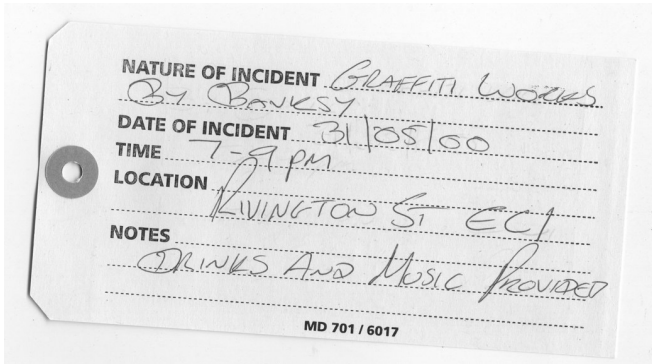 NATURE OF INCIDENT GRAFFITI WORKS
BY BANKSY
DATE OF INCIDENT 31/05/00
TIME 7-9 PM
LOCATION
RIVINGTON ST EC1
NOTES
DRINKS AND MUSIC PROVIDED
MD 701 / 6017